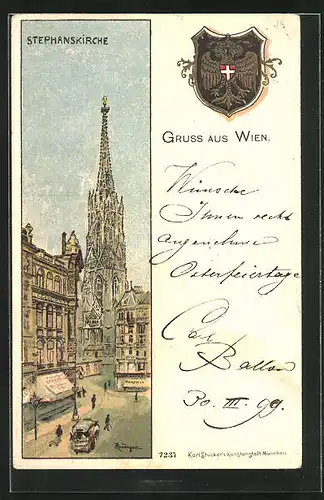 STEPHANSKIRCHE
GRUSS AUS WIEN.
Wünsche
Ihnen recht
angenehme
Osterfeiertage
Carl
Ballon
30. III. 99.
7237 Karl Stücker's Kunstanstalt München